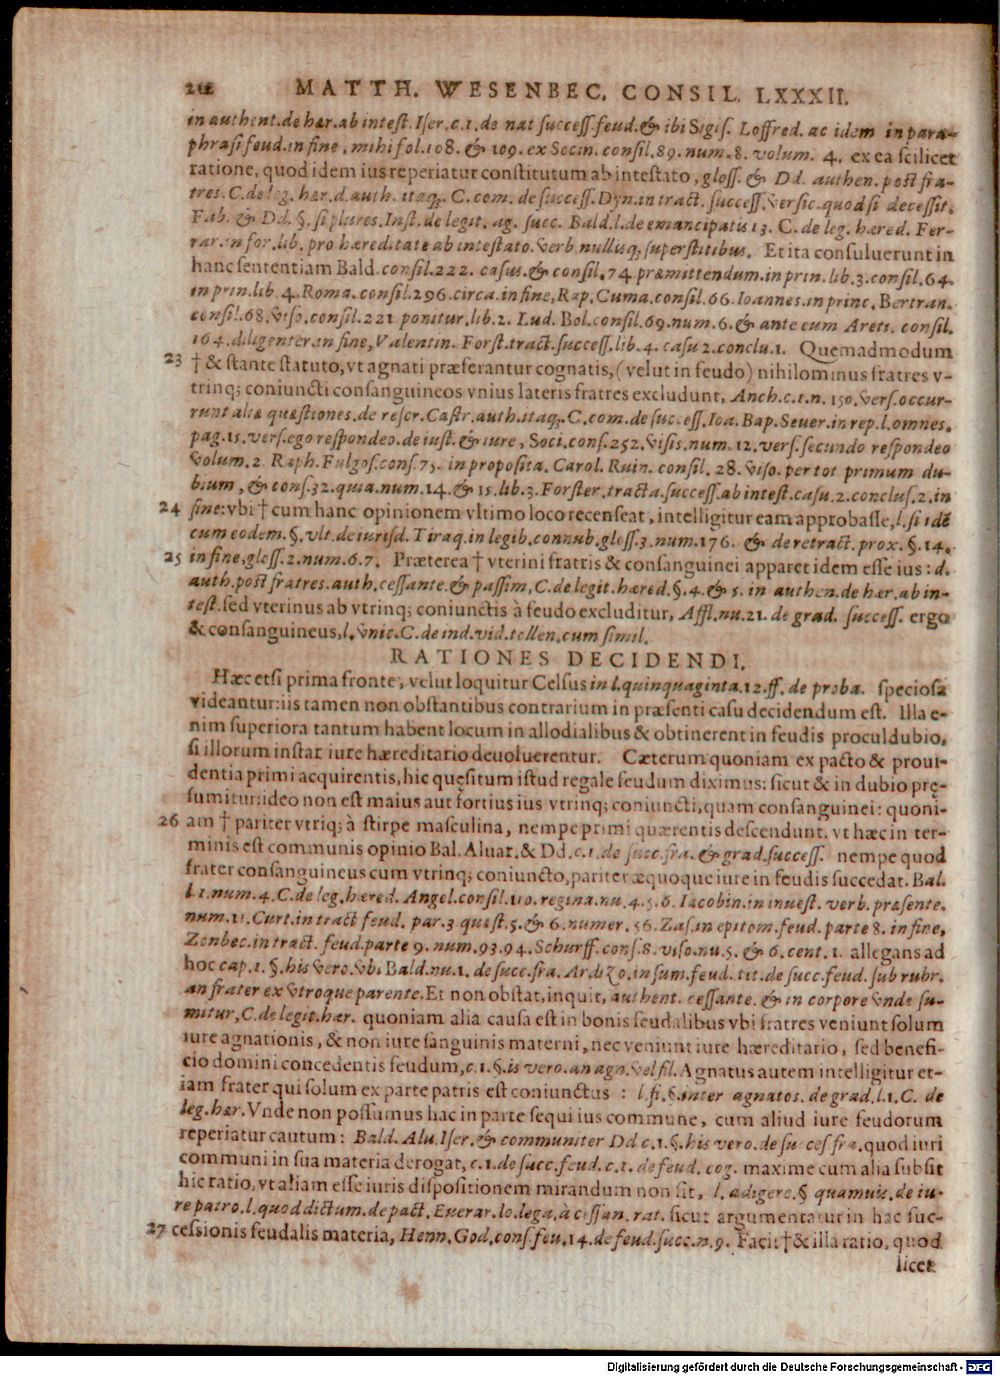 MATTH. WESENBEC. CONSIL. LXXXII.
in authent. de hær. ab intest. Iser. c. 1. de nat success. feud. & ibi Sigis. Loffred. ac idem in para-
phrasi feud. in fine, mihi fol. 108. & 109. ex Socin. consil. 89. num. 8. volum. 4. ex ea scilicet
ratione, quod idem ius reperiatur constitutum ab intestato, gloss. & Dd. authen. post fra-
tres. C. de leg. hær. d. auth. itaq; C. com. de success. Dyn. in tract. success. versic. quod si decessit.
Fab. & Dd. §. si plures. Inst. de legit. ag. succ. Bald. l. de emancipatis 13. C. de leg. hæred. Fer-
rar. in for. lib. pro hæreditate ab intestato. verb nullisq; superstitibus. Et ita consuluerunt in
hanc sententiam Bald. consil. 222. casus. & consil. 74 præmittendum. in prin. lib. 3. consil. 64.
in prin. lib. 4. Roma. consil. 296. circa. in fine, Rap. Cuma. consil. 66. Ioannes. in princ. Bertran.
consil. 68. viso. consil. 221 ponitur. lib. 2. Lud. Bol. consil. 69. num. 6. & ante eum Aret. consil.
164. diligenter. in fine, Valentin. Forst. tract. success. lib. 4. casu 2. conclu. 1. Quemadmodum
23 † & stante statuto, vt agnati præferantur cognatis, (velut in feudo) nihilominus fratres v-
trinq; coniuncti consanguineos vnius lateris fratres excludunt, Anch. c. 1. n. 150. vers. occur-
runt aliæ quæstiones. de rescr. Castr. auth. itaq; C. com. de success. Ioa. Bap. Seuer. in rep. l. omnes.
pag. 15. vers. ego respondeo. de iust. & iure, Soci. cons. 252. visis. num. 12. vers. secundo respondeo
volum. 2. Raph. Fulgos. cons. 75. in proposita. Carol. Ruin. consil. 28. viso. per tot primum du-
bium, & cons. 32. quia. num. 14. & 15. lib. 3. Forster. tracta. success. ab intest. casu. 2. conclus. 2. in
24 fine: vbi † cum hanc opinionem vltimo loco recenseat, intelligitur eam approbasse, l. si idē
cum eodem. §. vlt. de iurisd. Tiraq. in legib. connub. gloss. 3. num. 176. & de retract. prox. §. 14.
25 in fine, gloss. 2. num. 6. 7. Præterea † vterini fratris & consanguinei apparet idem esse ius: d.
auth. post fratres. auth. cessante. & passim, C. de legit. hæred. §. 4. & 5. in authen. de hær. ab in-
test. sed vterinus ab vtrinq; coniunctis à feudo excluditur, Affl. nu. 21. de grad. success. ergo
& consanguineus, l. vnic. C. de ind. vid. tollen. cum simil.
RATIONES DECIDENDI.
Hæc etsi prima fronte, velut loquitur Celsus in l. quinquaginta. 12. ff. de proba. speciosa
videantur: iis tamen non obstantibus contrarium in præsenti casu decidendum est. Illa e-
nim superiora tantum habent locum in allodialibus & obtinerent in feudis proculdubio,
si illorum instar iure hæreditario deuoluerentur. Cæterum quoniam ex pacto & proui-
dentia primi acquirentis, hic quęsitum istud regale feudum diximus: sicut & in dubio prę-
sumitur: ideo non est maius aut fortius ius vtrinq; coniuncti, quam consanguinei: quoni-
26 am † pariter vtriq; à stirpe masculina, nempe primi quærentis descendunt. vt hæc in ter-
minis est communis opinio Bal. Aluar. & Dd. c. 1. de succ. fra. & grad. success. nempe quod
frater consanguineus cum vtrinq; coniuncto, pariter æquoque iure in feudis succedat. Bal.
l. 1. num. 4. C. de leg. hæred. Angel. consil. 110. regina. nu. 4. 5. 6. Iacobin. in inuest. verb. præsente.
num. 11. Curt. in tract feud. par. 3 quæst. 5. & 6. numer. 56. Zas. in epitom. feud. parte 8. in fine,
Zonbec. in tract. feud. parte 9. num. 93. 94. Schurff. cons. 8. viso. nu. 5. & 6. cent. 1. allegans ad
hoc cap. 1. §. his vero. vbi Bald. nu. 1. de succ. fra. Ardizo. in sum. feud. tit. de succ. feud. sub rubr.
an frater ex vtroque parente. Et non obstat, inquit, authent. cessante. & in corpore vnde su-
mitur, C. de legit. hær. quoniam alia causa est in bonis feudalibus vbi fratres veniunt solum
iure agnationis, & non iure sanguinis materni, nec veniunt iure hæreditario, sed benefi-
cio domini concedentis feudum, c. 1. §. is vero. an agn. vel fil. Agnatus autem intelligitur et-
iam frater qui solum ex parte patris est coniunctus : l. fi. §. inter agnatos. de grad. l. 1. C. de
leg. hær. Vnde non possumus hac in parte sequi ius commune, cum aliud iure feudorum
reperiatur cautum: Bald. Alu. Iser. & communiter Dd c. 1. §. his vero. de succes fra. quod iuri
communi in sua materia derogat, c. 1. de succ. feud. c. 1. de feud. cog. maxime cum alia subsit
hic ratio, vt aliam esse iuris dispositionem mirandum non sit, l. adigere. § quamuis. de iu-
re patro. l. quod dictum. de pact. Euerar. lo. lega. à cessan. rat. sicut argumentatur in hac suc-
27 cessionis feudalis materia, Henn. God. cons. feu. 14. de feud. succ. n. 9. Facit † & illa ratio, quod
licet
Digitalisierung gefördert durch die Deutsche Forschungsgemeinschaft - DFG